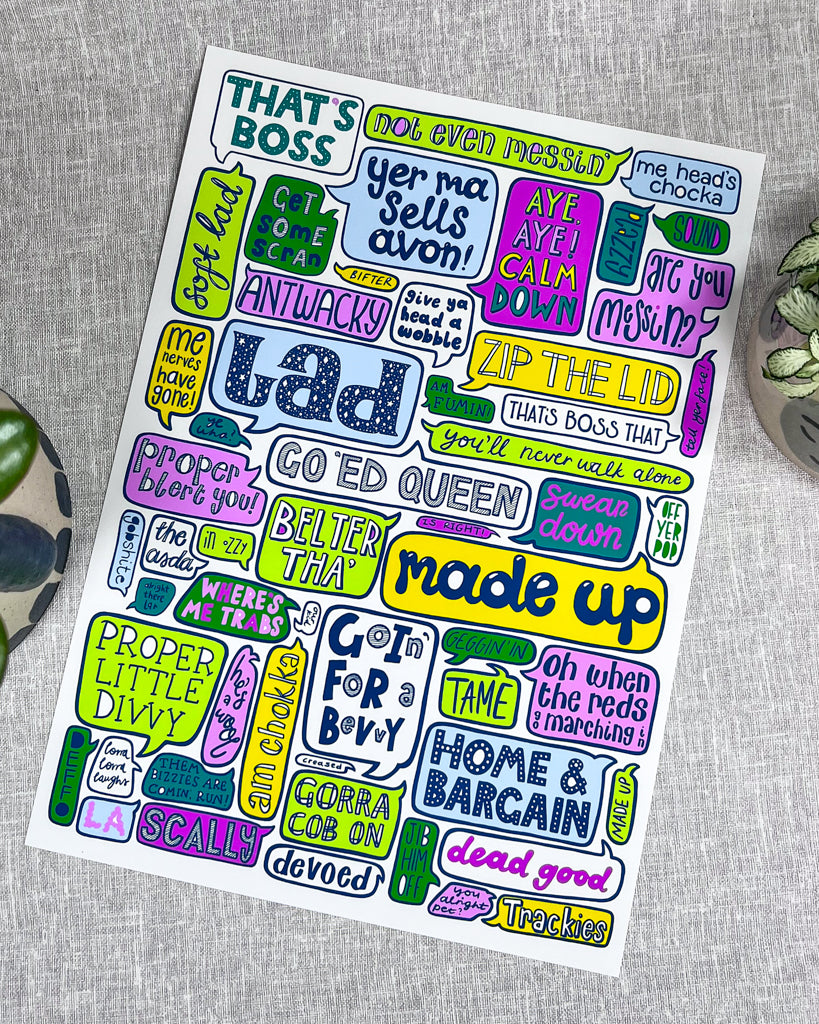 THAT'S
BOSS
not even messin'
me head's
chocka
soft lad
GET
SOME
SCRAN
yer ma
sells
avon!
AYE,
AYE!
CALM
DOWN
PAZZY
SOUND
are you
messin?
BIFTER
ANTWACKY
give ya
head a
wobble
me
nerves
have
gone!
Lad
ZIP THE LID
AM
FUMIN'
THATS BOSS THAT
tell yer face!
ye
wha!
you'll never walk alone
proper
blert you!
GO 'ED QUEEN
swean
down
OFF
YER
POD
IS RIGHT!
gobshite
the
asda
in ozzy
BELTER
THA'
made up
alright
there
lar
WHERE'S
ME TRABS
PROPER
LITTLE
DIVVY
he's a wool
am chokka
GOIN'
FOR a
BEVVY
GEGGIN' IN
TAME
oh when
the reds
go marching in
DEFFO
lorra
lorra
laughs
THEM
BIZZIES ARE
COMIN', RUN!
creased
HOME &
BARGAIN
MADE UP
LA
SCALLY
GORRA
COB ON
devoed
JIB
HIM
OFF
dead good
you
alright
pet?
Trackies